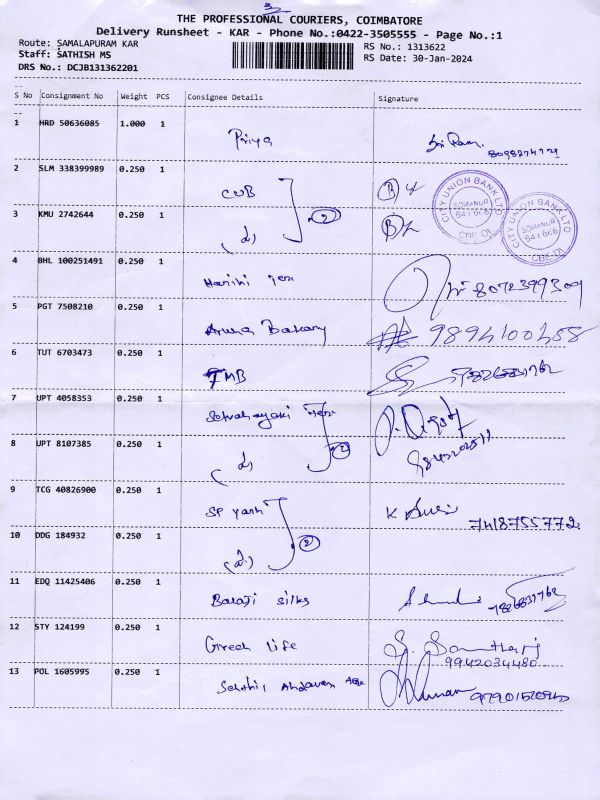 3
THE PROFESSIONAL COURIERS, COIMBATORE
Delivery Runsheet - KAR - Phone No.:0422-3505555 - Page No.:1
Route: SAMALAPURAM KAR
RS No.: 1313622
Staff: SATHISH MS
RS Date: 30-Jan-2024
DRS No.: DCJB131362201
S No Consignment No Weight PCS Consignee Details Signature
1 HRD 50636085 1.000 1 Priya Sri Ram.
2 SLM 338399989 0.250 1 CUB
CITY UNION BANK LTD SOMANUR 641 668 CBE-DT
CITY UNION BANK LTD SOMANUR 641 668 CBE-DT
3 KMU 2742644 0.250 1 2
4 BHL 100251491 0.250 1 Harini 8072399309
5 PGT 7508210 0.250 1 Aruna Bakary 9894100458
6 TUT 6703473 0.250 1 TMB
7 UPT 4058353 0.250 1
8 UPT 8107385 0.250 1 2
9 TCG 40826900 0.250 1 SP yarn K 7418755772
10 DDG 184932 0.250 1 2
11 EDQ 11425406 0.250 1 Balaji silks
12 STY 124199 0.250 1 Green life 9942034480
13 POL 1605995 0.250 1